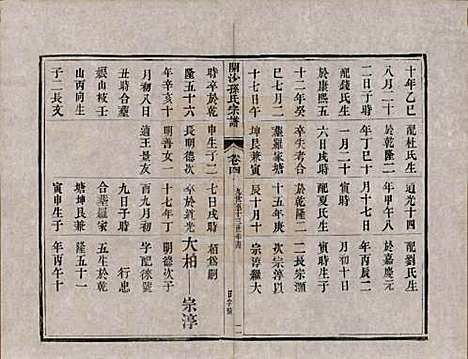 十年乙巳 配杜氏生 道光十四 配劉氏生
八月二十 於乾隆二 年甲午八 於嘉慶元
二日丁時 年丙辰二
配錢氏生 一月二十 寅時 月初十日
於康熙五 六日戌時 配夏氏生
十二年癸 卒失考合 於乾隆二 二長宗灝
巳七月二 葬羅家塘 十五年庚 次宗淳以
十七日午 坤艮兼寅 辰十月十 宗淳繼大
開沙孫氏宗譜 卷四 九世至十三世年齒 一
時卒於乾 申生子二 七日戌時 柏爲嗣
隆五十六 長明德次 大柏 宗淳
年辛亥十 明善女一 十七年丁 明德次子
月初八日 適王景友 酉九月初 字配徠號
丑時合葬 九日子時 行忠
巖山枝王 合葬羅家 五生於乾
山丙兼午 塘坤艮兼 隆五十一
子二長友 寅申生子 年丙午十